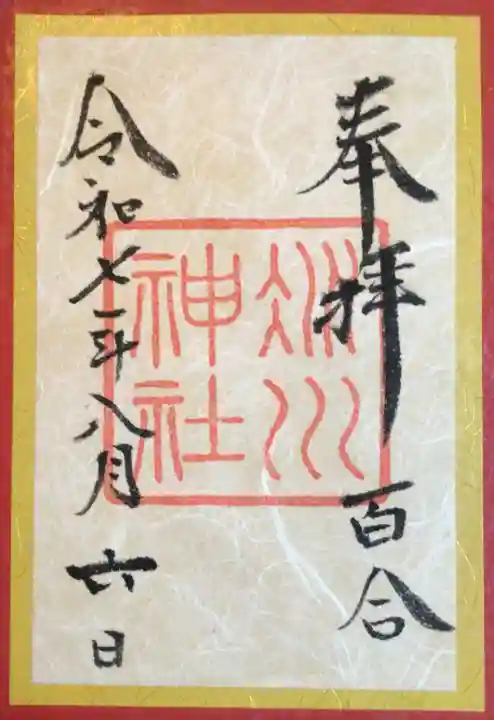 奉拝 百合
冰川
神社
令和七年八月六日